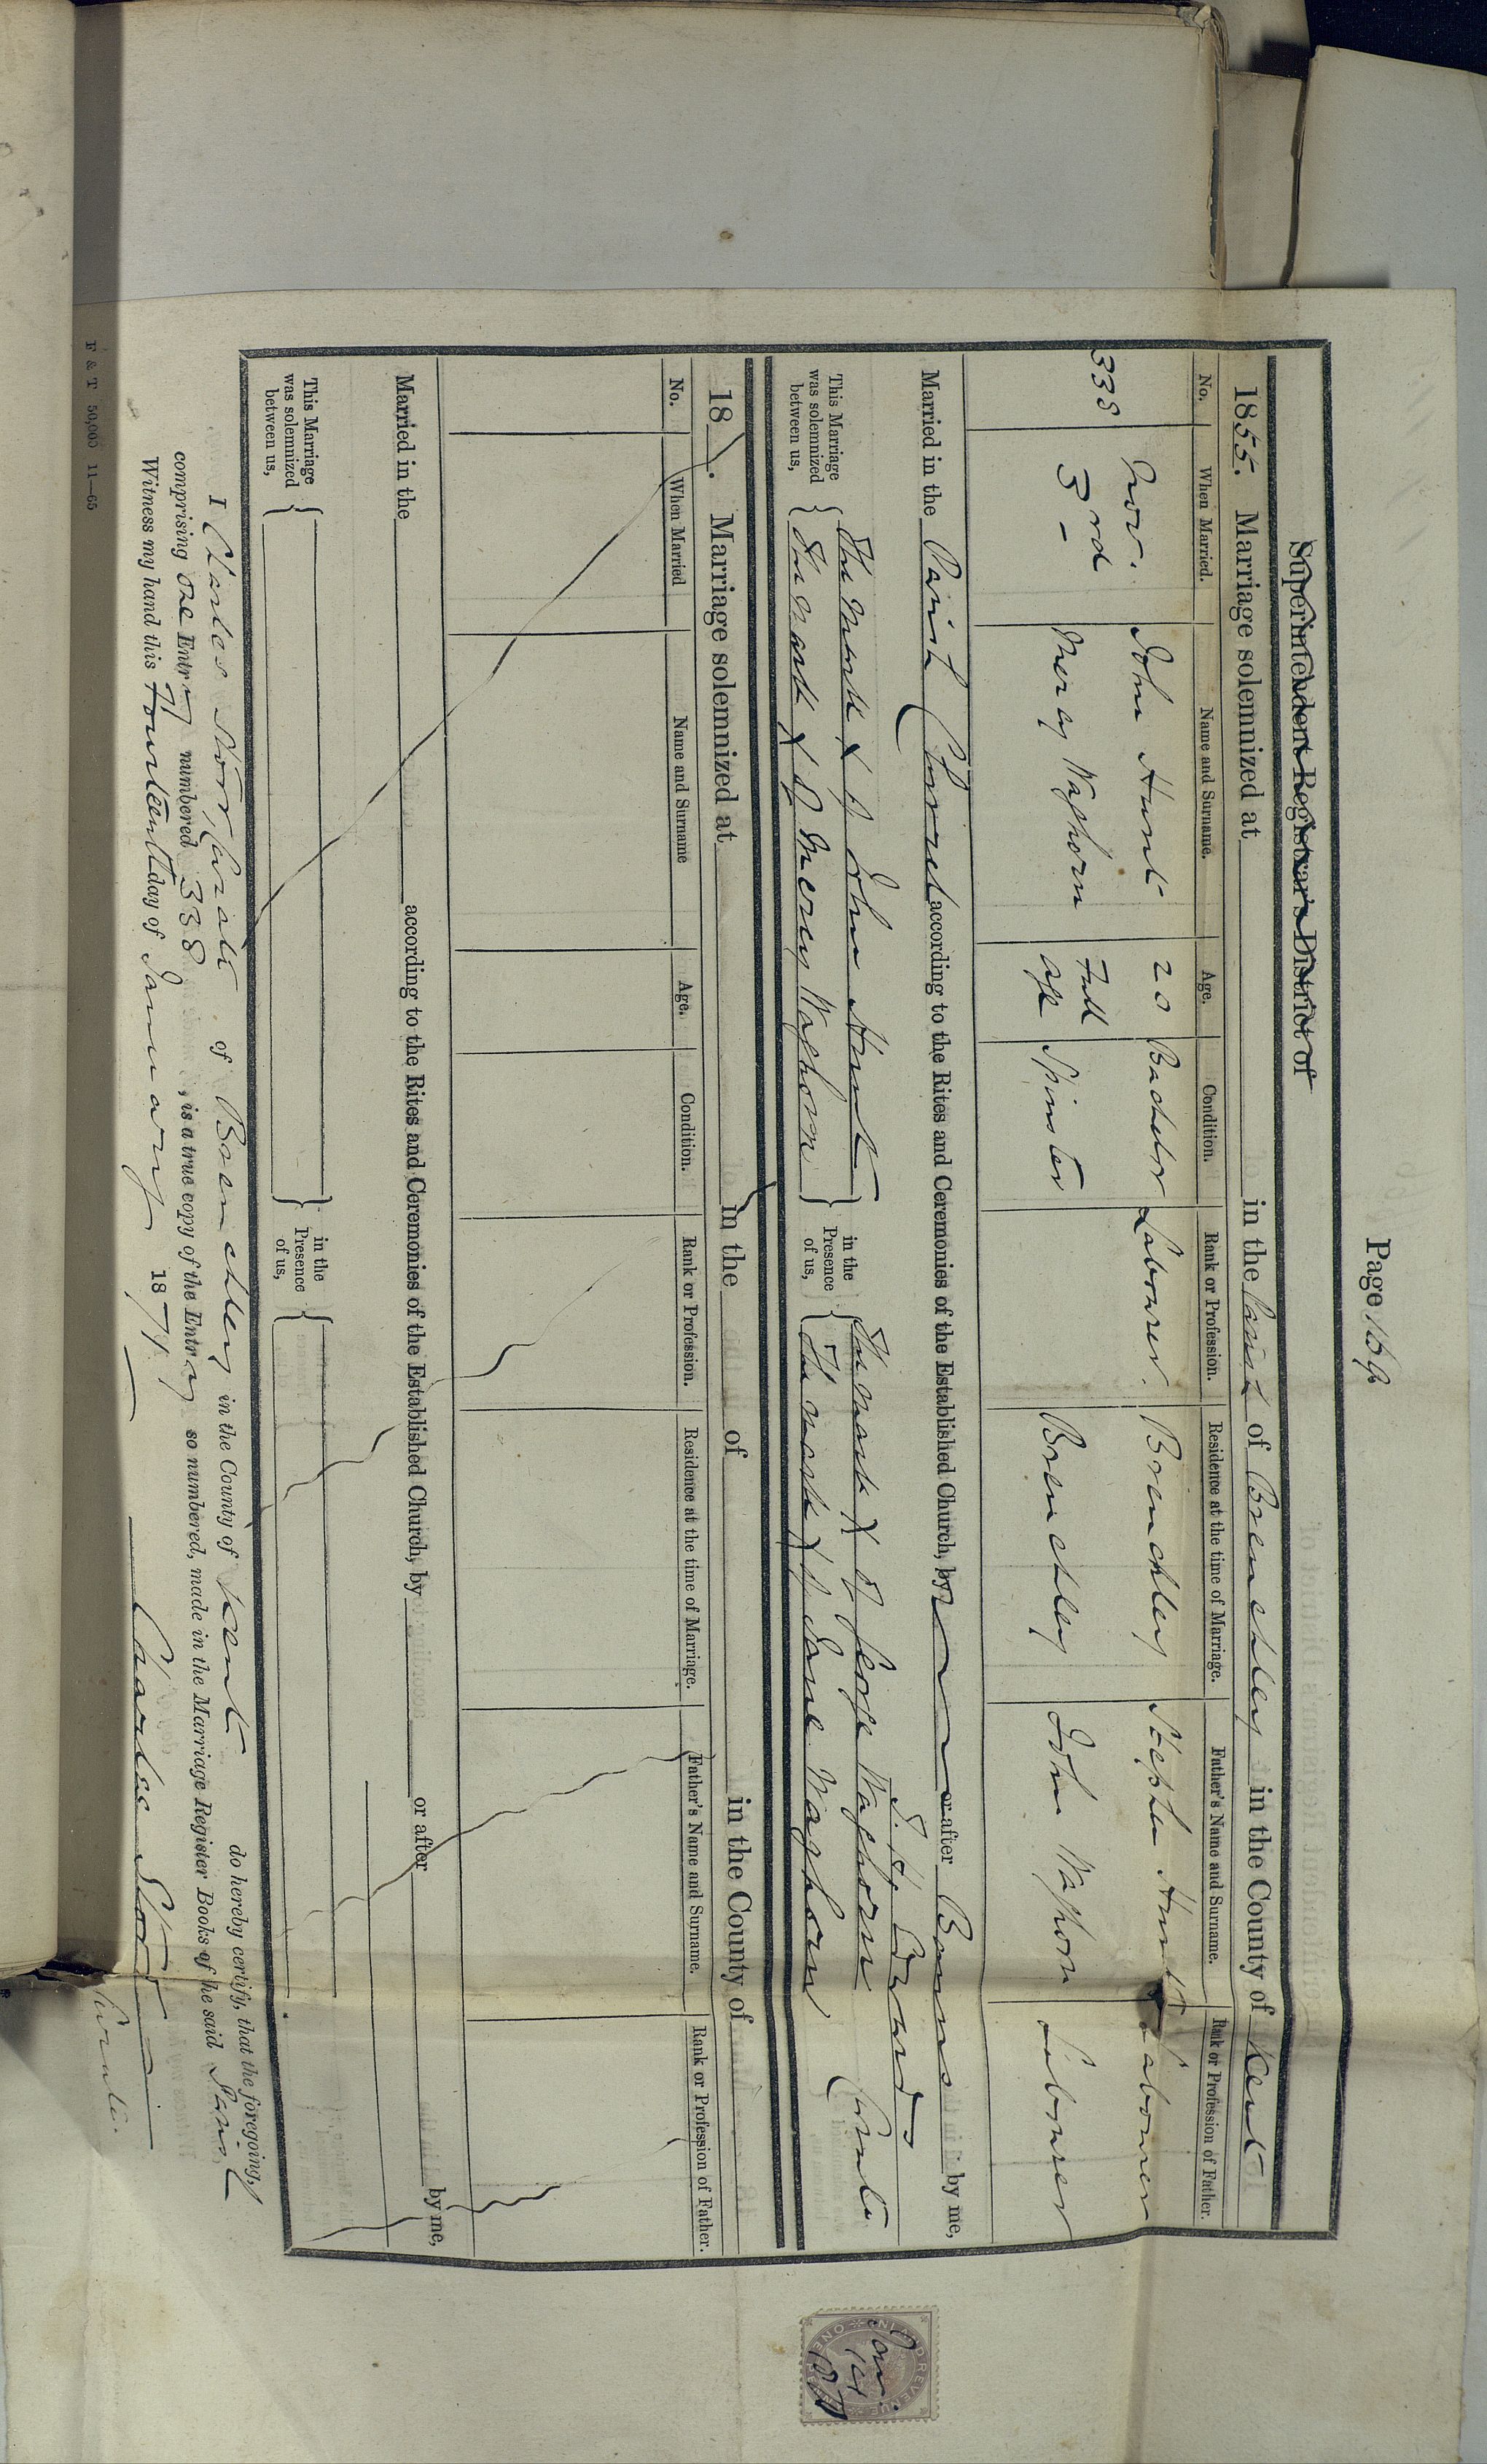 Page 164
Superintendent Registrar's District of
1855. Marriage solemnized at in the Parish of Brenchley in the County of Kent
No. When Married. Name and Surname. Age. Condition. Rank or Profession. Residence at the time of Marriage. Father's Name and Surname. Rank or Profession of Father.
Nov. John Hunt 20 Bachelor Labourer. Brenchley Stephen Hunt Labourer
338 3rd Mercy Waghorn Full age Spinster Brenchley John Waghorn Labourer
Married in the Parish Church according to the Rites and Ceremonies of the Established Church, by or after Banns by me,
This Marriage was solemnized between us, The mark X of John Hunt in the Presence of us, The mark X of George Waghorn Curate
The mark X of Mercy Waghorn The mark X of Jane Waghorn
18 . Marriage solemnized at in the of in the County of
No. When Married Name and Surname Age. Condition. Rank or Profession. Residence at the time of Marriage. Father's Name and Surname. Rank or Profession of Father.
Married in the according to the Rites and Ceremonies of the Established Church, by or after by me,
This Marriage was solemnized between us, in the Presence of us,
I Charles Storr, Curate of Brenchley in the County of Kent do hereby certify, that the foregoing,
comprising one Entry numbered 338 , is a true copy of the Entry so numbered, made in the Marriage Register Books of the said Parish
Witness my hand this Fourteenth day of January 1871
Charles Storr
Curate.
F & T 50,000 11—65
INLAND REVENUE ONE PENNY
Jan. 14 1871